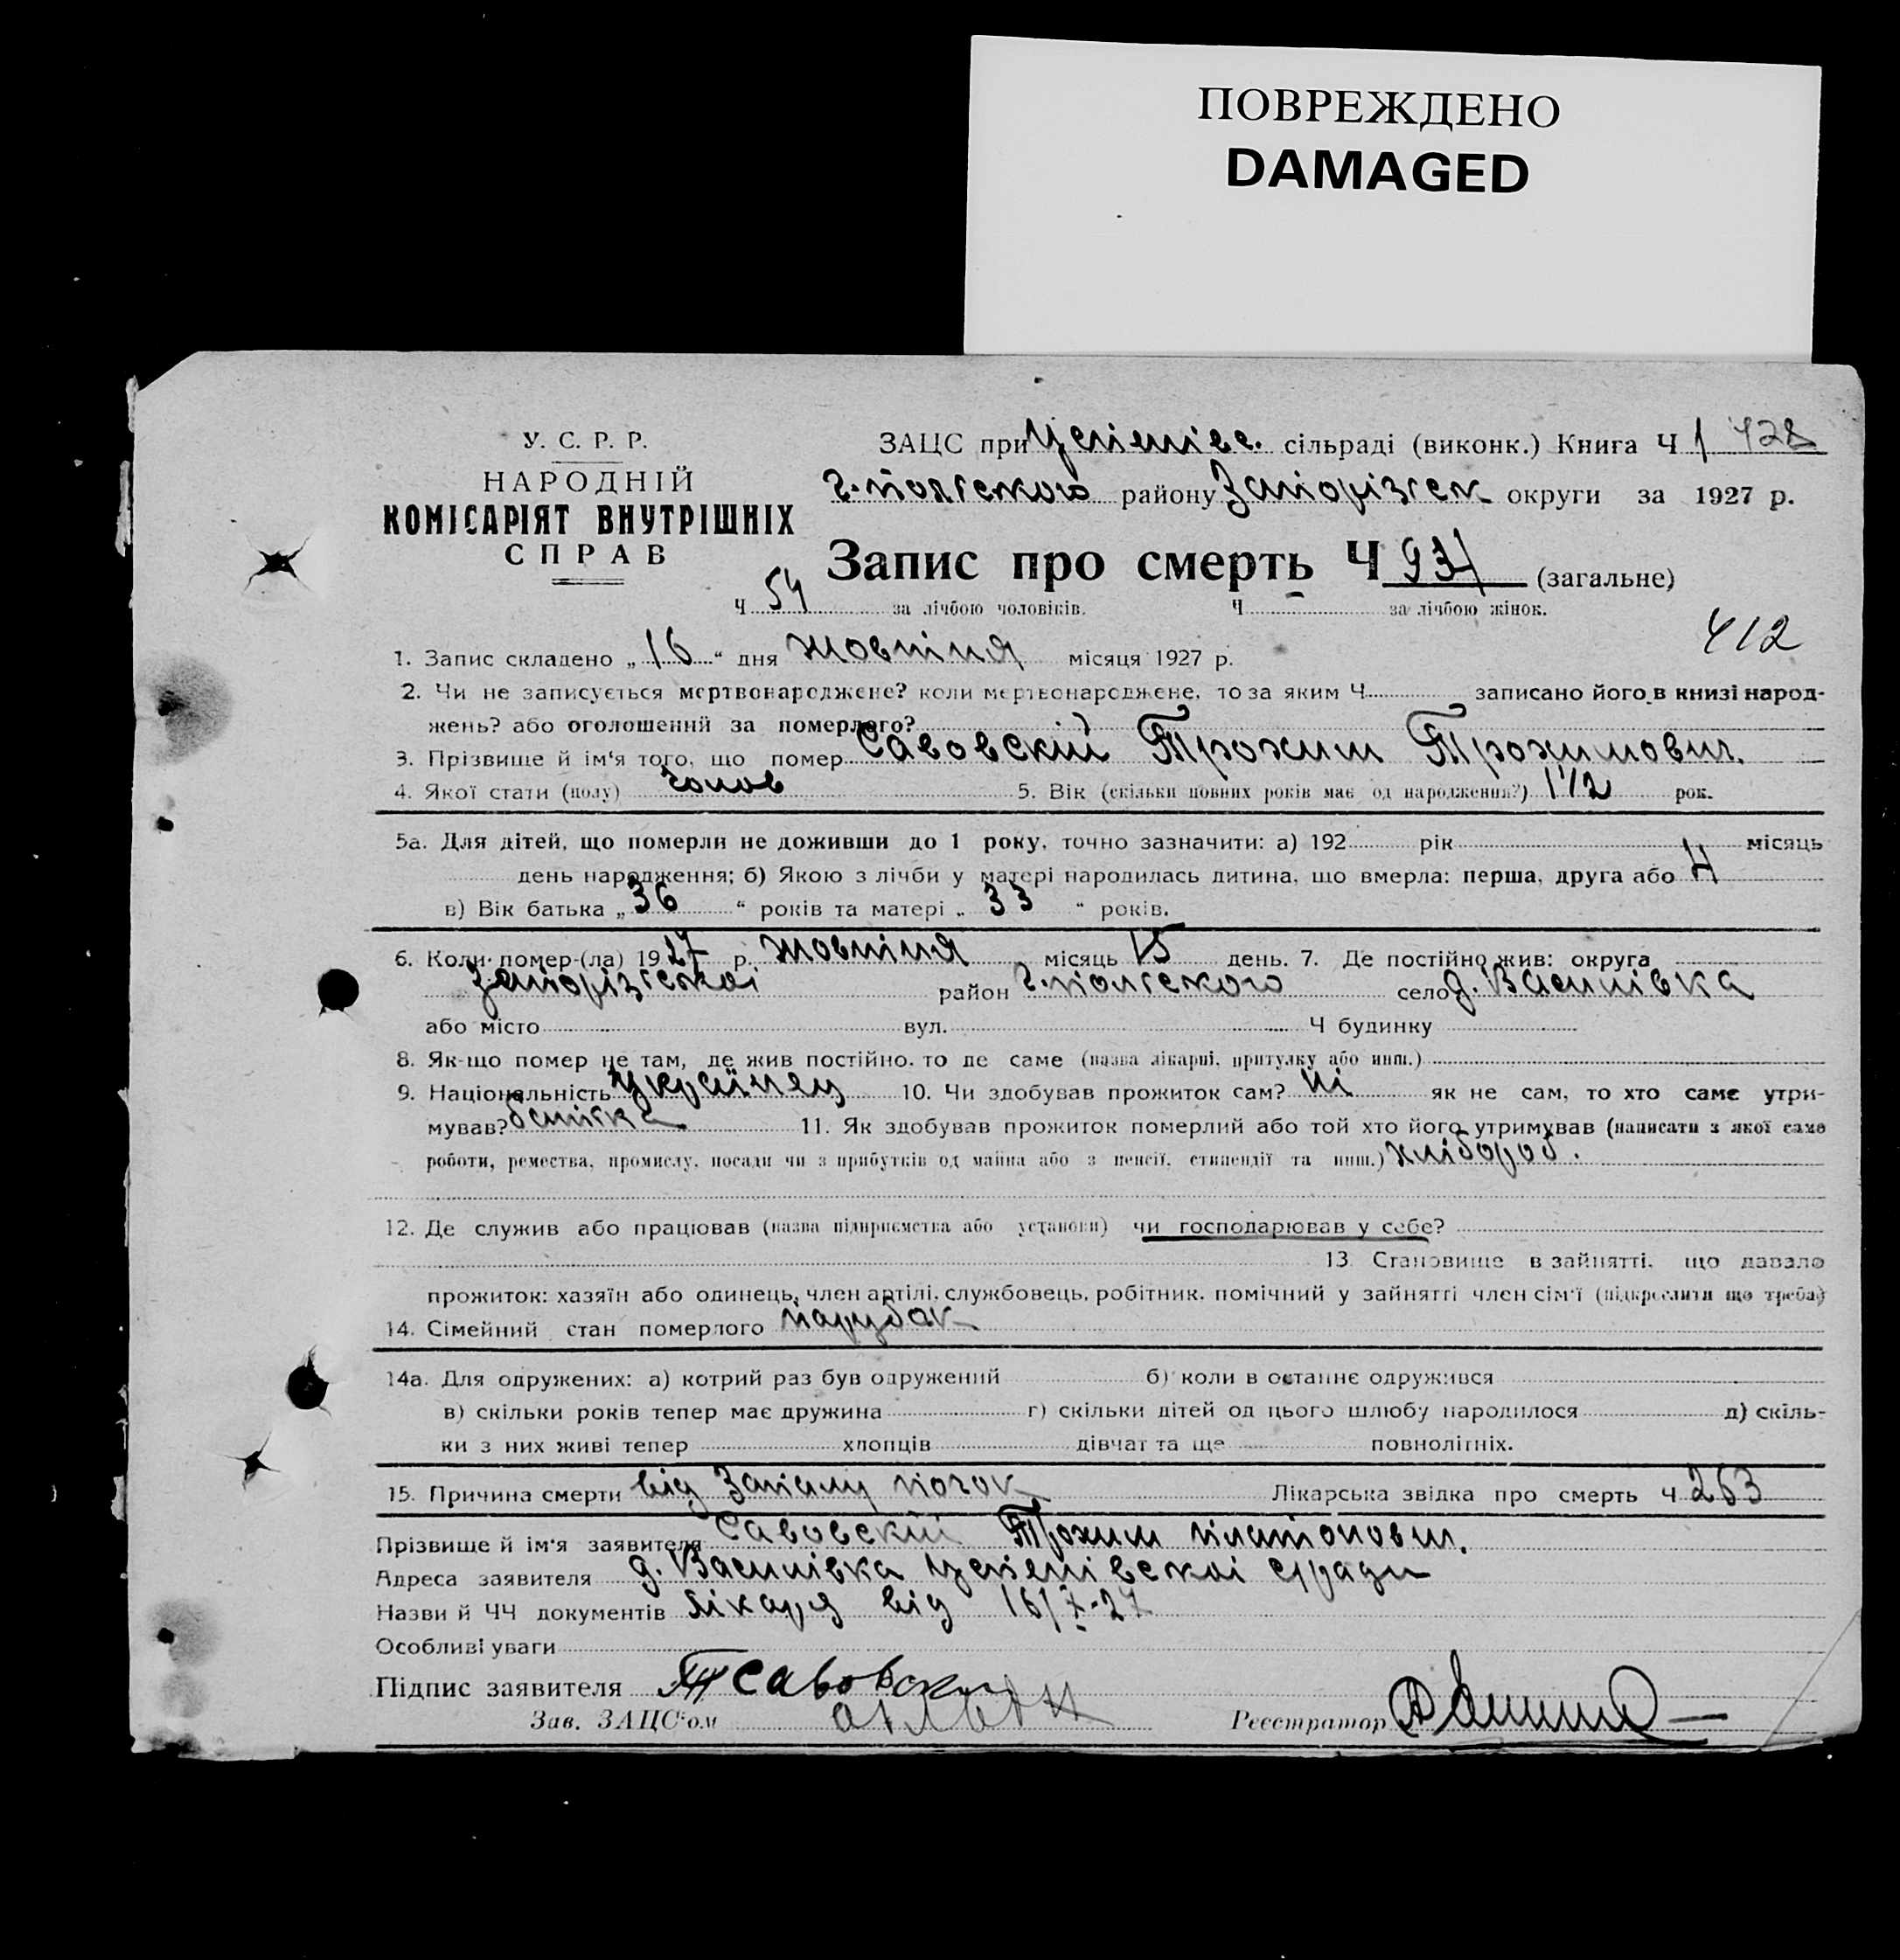 ПОВРЕЖДЕНО
DAMAGED
У. С. Р. Р.
НАРОДНІЙ
КОМІСАРІЯТ ВНУТРІШНІХ
СПРАВ
ЗАЦС при сільраді (виконк.) Книга Ч 1 428
г.-польського району Запорізськ округи за 1927 р.
Запис про смерть Ч 93 (загальне)
Ч 54 за лічбою чоловіків. Ч - за лічбою жінок.
412
1. Запис складено „ 16 “ дня жовтня місяця 1927 р.
2. Чи не записується мертвонароджене? коли мертвонароджене, то за яким Ч записано його в книзі народ-
жень? або оголошений за померлого?
3. Прізвище й ім'я того, що помер Савовский Трохим Трохимович.
4. Якої стати (полу) чолов 5. Вік (скільки повних років має од народження?) 1 1/2 рок.
5а. Для дітей, що померли не доживши до 1 року, точно зазначити: а) 192 рік місяць
день народження; б) Якою з лічби у матері народилась дитина, що вмерла: перша, друга або 4
в) Вік батька „ 36 “ років та матері „ 33 “ років.
6. Коли помер-(ла) 1927 р. жовтня місяць 15 день. 7. Де постійно жив: округа
Запорізської район г.-польського село д. Василівка
або місто вул. Ч будинку
8. Як-що помер не там, де жив постійно, то де саме (назва лікарні, притулку або инш.)
9. Національність українец 10. Чи здобував прожиток сам? ні як не сам, то хто саме утри-
мував? батька 11. Як здобував прожиток померлий або той хто його утримував (написати з якої саме
роботи, ремества, промислу, посади чи з прибутків од майна або з пенсії, стипендії та инш.) хлібороб.
12. Де служив або працював (назва підприємства або установи) чи господарював у себе?
13. Становище в зайнятті, що давало
прожиток: хазяїн або одинець, член артілі, службовець, робітник, помічний у зайнятті член сім'ї (підкреслити що треба)
14. Сімейний стан померлого парубак
14а. Для одружених: а) котрий раз був одружений б) коли в останнє одружився
в) скільки років тепер має дружина г) скільки дітей од цього шлюбу народилося д) скіль-
ки з них живі тепер хлопців дівчат та ще повнолітніх.
15. Причина смерти від Запалу почок Лікарська звідка про смерть ч 263
Прізвище й ім'я заявителя Савовский Трохим платонович.
Адреса заявителя д. Василівка с/ради
Назви й ЧЧ документів лікаря від 16/X-27
Особливі уваги
Підпис заявителя Т Савовский
Зав. ЗАЦС'ом Реєстратор